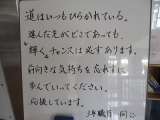 道はいつもひらかれている。
進んだ先がどこであっても、
“輝く”チャンスは必ずあります。
前向きな気持ちを忘れずに
歩んでいってください。
応援しています。
3年職員一同